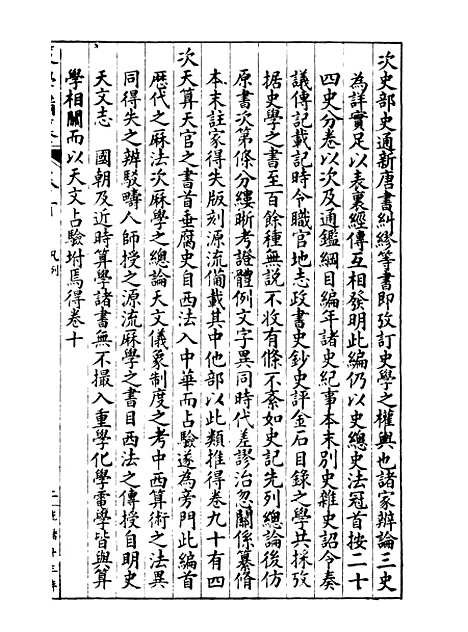 次史部史通新唐書糾繆等書即攷訂史學之權輿也諸家辨論三史
為詳實足以表裏經傳互相發明此編仍以史總史法冠首按二十
四史分卷以次及通鑑綱目編年諸史紀事本末別史雜史詔令奏
議傳記載記時令職官地志政書史鈔史評金石目錄之學共採攷
据史學之書至百餘種無説不收有條不紊如史記先列總論後仿
原書次第條分縷晰考證體例文字異同時代差謬治忽關係纂脩
本末註家得失版刻源流備載其中他部以此類推得卷九十有四
次天算天官之書首垂腐史自西法入中華而占驗遂為旁門此編首
歷代之厤法次厤學之總論天文儀象制度之考中西算術之法異
同得失之辨駁疇人師授之源流厤學之書目西法之傳授自明史
天文志 國朝及近時算學諸書無不撮入重學化學電學皆與算
學相關而以天文占驗坿焉得卷十
凡例
二